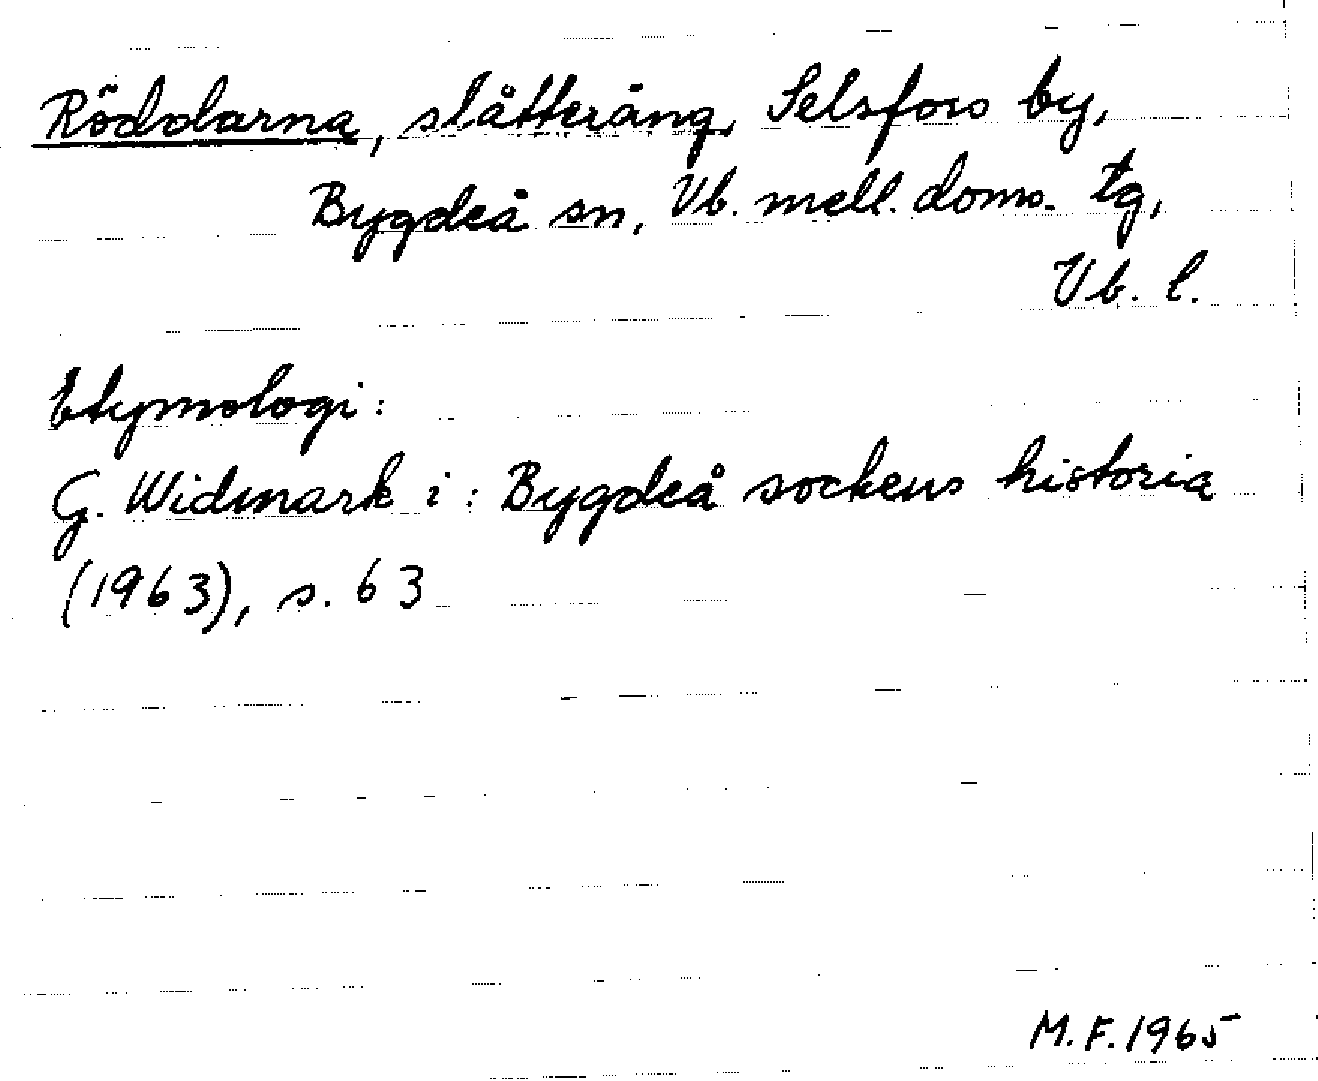 Röddlarna, slåtteräng, Selsfors by,
Bygdeå sn, Vb. mell. doms. tg,
Vb. l.
Etymologi:
G. Widmark i: Bygdeå sockens historia
(1963), s. 63
M.F. 1965